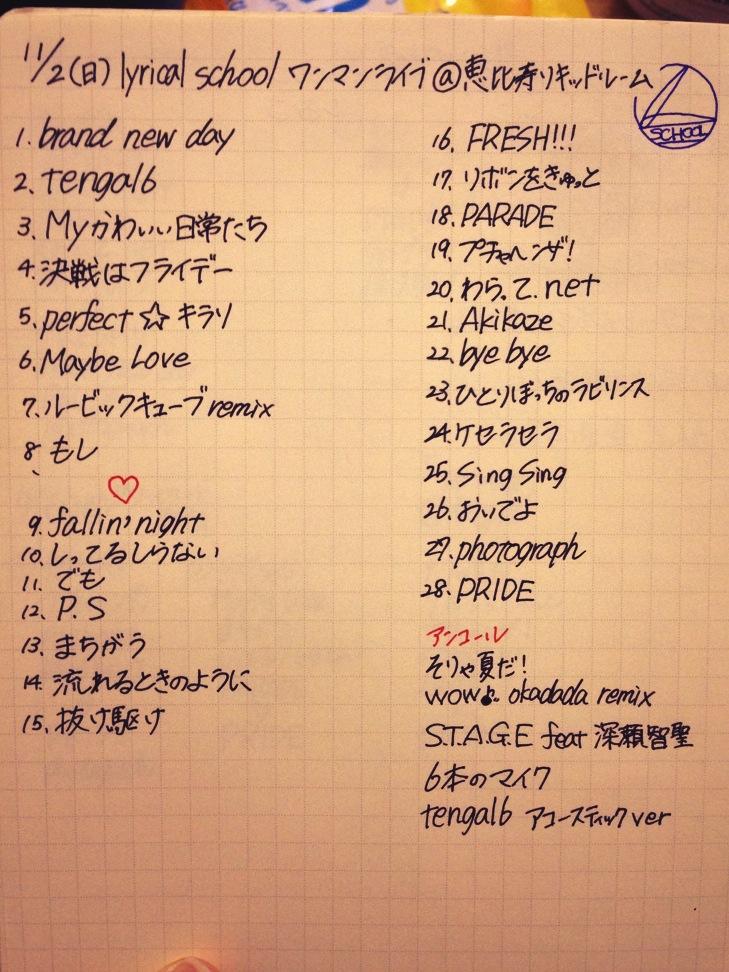 11/2(日) lyrical school ワンマンライブ@恵比寿リキッドルーム
SCHOOL
1. brand new day
2. tengal6
3. Myかわいい日常たち
4. 決戦はフライデー
5. perfect☆キラリ
6. Maybe Love
7. ルービックキューブremix
8. もし
♡
9. fallin' night
10. しってるしらない
11. でも
12. P.S
13. まちがう
14. 流れるときのように
15. 抜け駆け
16. FRESH!!!
17. リボンをきゅっと
18. PARADE
19. プチャヘンザ!
20. わら.て.net
21. Akikaze
22. bye bye
23. ひとりぼっちのラビリンス
24. ケセラセラ
25. Sing Sing
26. おいでよ
27. photograph
28. PRIDE
アンコール
そりゃ夏だ!
wow♪. okadada remix
S.T.A.G.E feat 深瀬智聖
6本のマイク
tengal6 アコースティックver